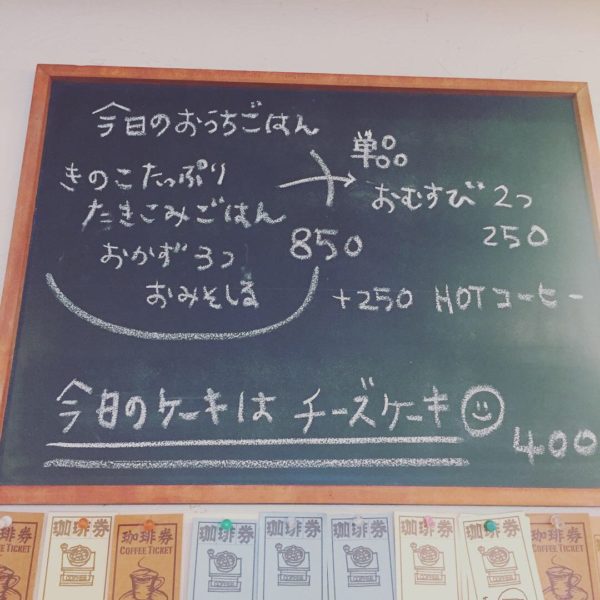 今日のおうちごはん
きのこたっぷり
たきこみごはん
おかず3つ
おみそしる
850
単品
おむすび 2つ
250
+250 HOTコーヒー
今日のケーキは チーズケーキ
400
珈琲券
珈琲券
COFFEE TICKET
珈琲券
COFFEE TICKET
珈琲券
COFFEE
珈琲券
COFFEE
珈琲券
COFFEE
珈琲券
COFFEE
珈琲券
COFFEE
珈琲券
COFFEE TICKET